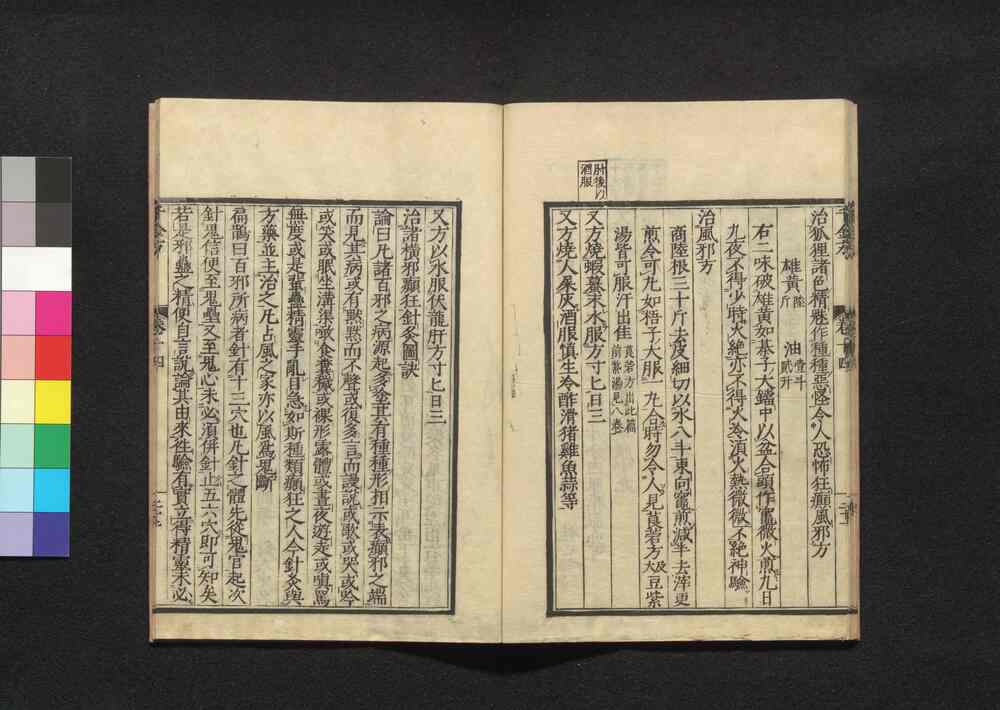 肘後以
酒服
治狐狸諸色精魅作種種惡怪令人恐怖狂癲風邪方
雄黃陸斤 油壹斗貳升
右二味破雄黃如棊子大鐺中以盆合頭作竈微火煎九日
九夜不得少時火絕亦不得火冷須火熱微微不絕神驗
治風邪方
商陸根三十斤去皮細切以水八斗東向竈煎減半去滓更
煎令可丸如梧子大服一丸合時勿令人見莨菪方及大豆紫
湯皆可服汗出佳莨菪方出此篇前紫湯見八卷
又方燒蝦蟇末水服方寸匕日三
又方燒人屎灰酒服慎生冷酢滑猪雞魚蒜等
又方以水服伏龍肝方寸匕日三
治諸橫邪癲狂針灸圖訣
論曰凡諸百邪之病源起多塗其有種種形相示表癲邪之端
而見其病或有默默而不聲或復多言而謾說或歌或哭或吟
或笑或眠坐溝渠噉食糞穢或裸形露體或晝夜遊走或嗔罵
無度或是蜚蠱精靈手亂目急如斯種類癲狂之人今針灸與
方藥並主治之凡占風之家亦以風爲鬼斷
扁鵲曰百邪所病者針有十三穴也凡針之體先從鬼宮起次
針鬼信便至鬼壘又至鬼心未必須併針止五六穴即可知矣
若是邪蠱之精便自言說論其由來往驗有實立得精靈未必
千金方
卷十四